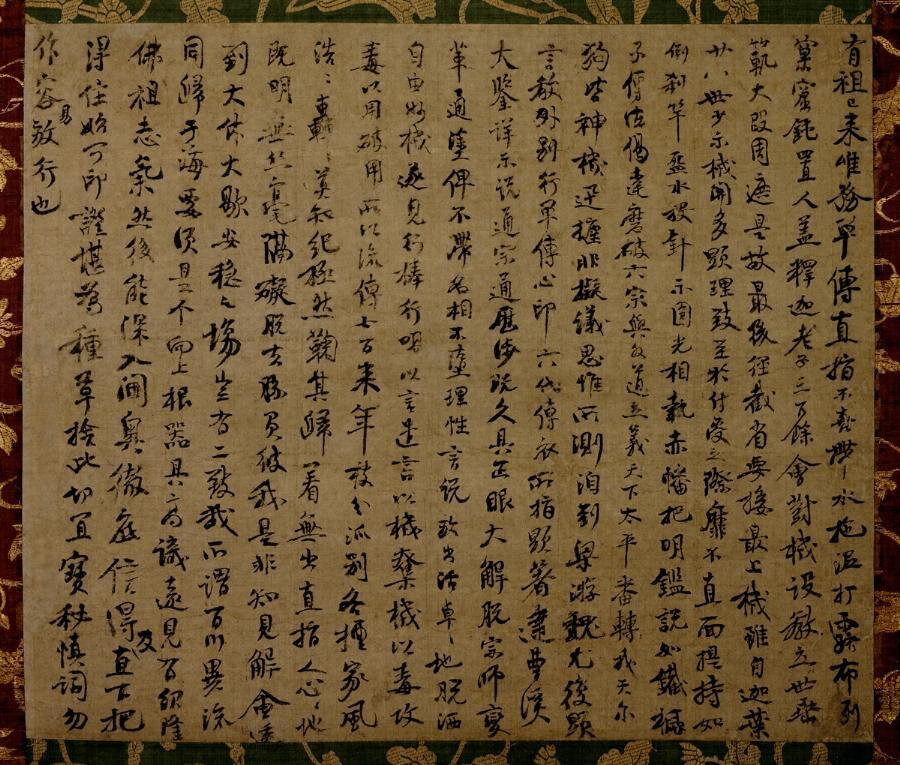 有祖已来唯務單傳直指不喜帶水拖泥打露布列
窠窟鈍置人盖釋迦老子三百餘會對機設教立世垂
範大段周遮是故最後徑截省要接最上機雖自迦葉
廿八世少示機關多顯理致至於付受之際靡不直面提持如
倒刹竿盂水投針示圓光相執赤幡把明鑑説如鐵橛
子傳法偈達磨破六宗與外道立義天下太平番轉我天尔
狗皆神機迅捷非擬議思惟所測洎到梁游魏尤復顯
言教外别行單傳心印六代傳衣所指顯著逮曹溪
大鑒詳示説通宗通歷涉既久具正眼大解脱宗師變
革通塗俾不滯名相不墮理性言説放出活卓〻地脱洒
自由妙機遂見行棒行喝以言遣言以機奪機以毒攻
毒以用破用所以流傳七百来年枝分派别各擅家風
浩〻轟〻莫知紀極然鞠其歸着無出直指人心〻地
既明無絲毫隔礙脱去勝負彼我是非知見解會透
到大休大歇安穩之場豈有二致哉所謂百川異流
同歸于海要須是个向上根器具高識遠見有紹隆
佛祖志氣然後能深入閫奥徹底信得及直下把
得住始可印證堪為種草捨此切宜寶秘慎詞勿
作容易放行也